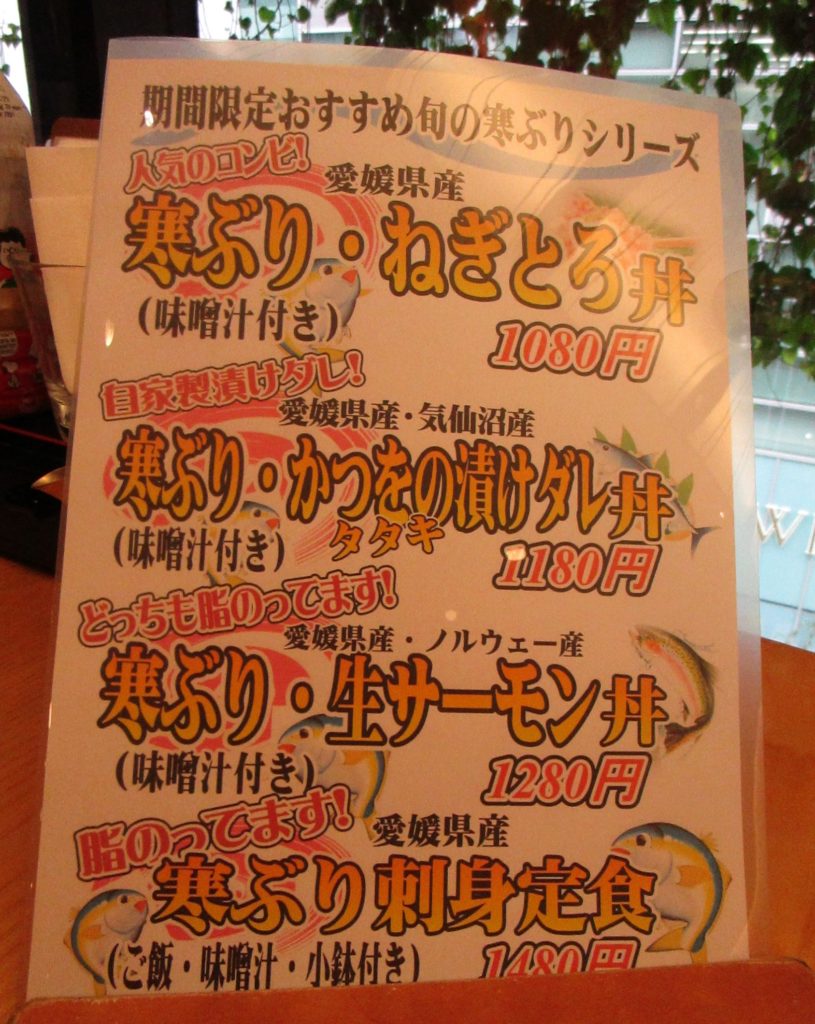 期間限定おすすめ旬の寒ぶりシリーズ
人気のコンビ!
愛媛県産
寒ぶり・ねぎとろ丼
(味噌汁付き)
1080円
自家製漬けダレ!
愛媛県産・気仙沼産
寒ぶり・かつをの漬けダレ丼
タタキ
(味噌汁付き)
1180円
どっちも脂のってます!
愛媛県産・ノルウェー産
寒ぶり・生サーモン丼
(味噌汁付き)
1280円
脂のってます!
愛媛県産
寒ぶり刺身定食
(ご飯・味噌汁・小鉢付き)
1480円